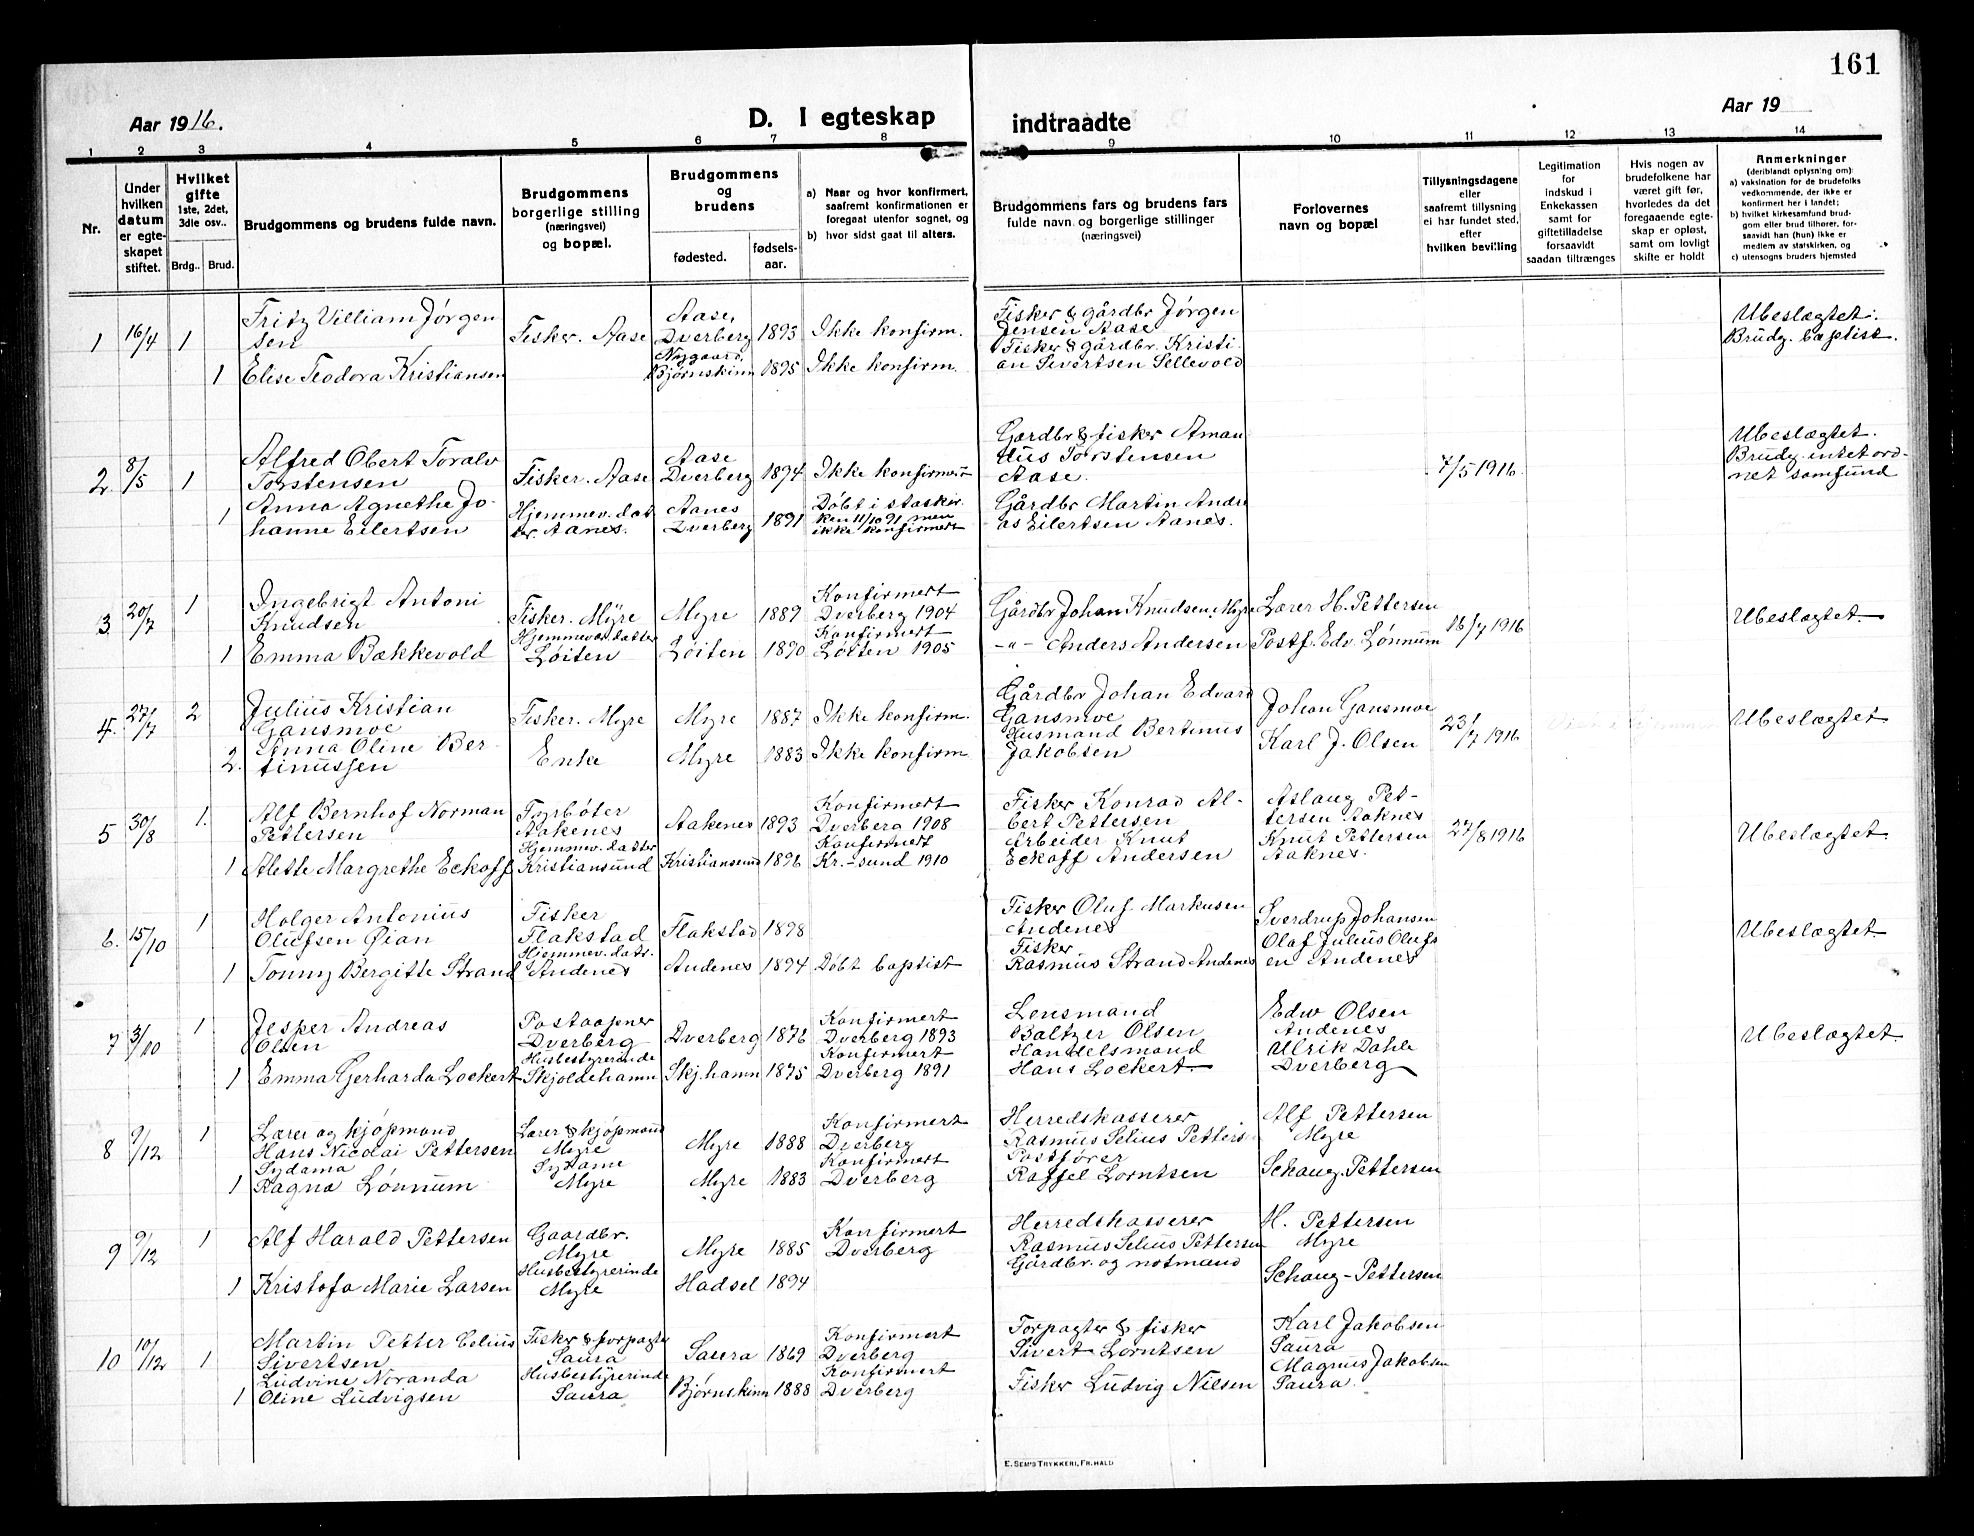 161
Aar 1916.
D. I egteskap
indtraadte
Aar 19
1 2 3 4 5 6 7 8 9 10 11 12 13 14
Nr.
Under hvilken datum er egteskapet stiftet.
Hvilket gifte 1ste, 2det, 3die osv..
Brdg.. Brud.
Brudgommens og brudens fulde navn.
Brudgommens borgerlige stilling (næringsvei) og bopæl.
Brudgommens og brudens
fødested.
fødsels-aar.
a) Naar og hvor konfirmert, saafremt konfirmationen er foregaat utenfor sognet, og
b) hvor sidst gaat til alters.
Brudgommens fars og brudens fars fulde navn og borgerlige stillinger (næringsvei)
Forlovernes navn og bopæl
Tillysningsdagene eller saafremt tillysning ei har fundet sted, efter hvilken bevilling
Legitimation for indskud i Enkekassen samt for giftetilladelse forsaavidt saadan tiltrænges
Hvis nogen av brudefolkene har været gift før, hvorledes da det foregaaende egteskap er opløst, samt om lovligt skifte er holdt
Anmerkninger (deriblandt oplysning om):
a) vaksination for de brudefolks vedkommende, der ikke er konfirmert her i landet;
b) hvilket kirkesamfund brudgom eller brud tilhører, forsaavidt han (hun) ikke er medlem av statskirken, og
c) utensogns bruders hjemsted
1 16/4 1 Fritz Villiam Jørgensen Fisker. Aase Aase, Dverberg 1893 Ikke konfirm. Fisker & gårdbr Jørgen Jensen Aase Ubeslægtet. Brudg. baptist.
1 Elise Teodora Kristiansen Nygaard, Bjørnskinn 1895 Ikke konfirm. Fisker & gårdbr. Kristian Sivertsen Sellevold
2 8/5 1 Alfred Obert Toralv Torstensen Fisker. Aase Aase Dverberg 1894 Ikke konfirmert Gårdbr & fisker Amandus Torstensen Aase. 7/5 1916. Ubeslægtet. Brudg. intet ordnet samfund
1 Anna Agnethe Johanne Eilertsen Hjemmev. datter. Aanes. Aanes Dverberg 1891 Døbt i statskirken 11/10 91 men ikke konfirmert Gårdbr Martin Andreas Eilertsen Aanes.
3. 20/7 1 Ingebrigt Antoni Knudsen Fisker. Myre Myre 1889 Konfirmert Dverberg 1904 Gårdbr Johan Knudsen, Myre Lærer H. Pettersen 16/7 1916 Ubeslægtet.
1 Emma Bækkevold Hjemmev. datter Løiten Løiten 1890 Konfirmert Løiten 1905 -"- Anders Andersen Postf. Edv. Lønnum
4. 27/7 2 Julius Kristian Gansmoe Fisker. Myre Myre 1887 Ikke konfirm. Gårdbr Johan Edvard Gansmoe Johan Gansmoe 23/7 1916 Ubeslægtet
2. Anna Oline Bertinussen Enke Myre 1883 Ikke konfirm Husmand Bertinus Jakobsen Karl J. Olsen
5 30/8 1. Alf Bernhof Norman Pettersen Aakenes Aakenes 1893 Konfirmert Dverberg 1908 Fisker Konrad Albert Pettersen Aslaug Pettersen Aaknes 27/8 1916 Ubeslægtet
1 Alette Margrethe Eckoff Hjemmev. datter Kristiansund Kristiansund 1896 Konfirmert Kr.-sund 1910 Arbeider Knut Eckoff Andersen Knut Pettersen Aaknes.
6. 15/10 1 Holger Antonius Olufsen Øian Fisker Flakstad Flakstad 1898 Fisker Oluf Markusen Andenes Sverdrup Johansen Ubeslægtet.
1 Tonny Bergitte Strand Hjemmev. datt. Andenes Andenes 1894 Døbt baptist Fisker Rasmus Strand Andenes Olaf Julius Olufsen Andenes
7 3/10 1 Jesper Andreas Olsen Postaapner Dverberg Dverberg 1876 Konfirmert Dverberg 1893 Lensmand Baltzer Olsen Edw Olsen Andenes Ubeslægtet.
1 Emma Gerharda Lockert Husbestyrerinde Skjoldehamn Skj.hamn 1875 Konfirmert Dverberg 1891 Handelsmand Hans Lockert. Ulrik Dahle Dverberg
8 9/12 1 Lærer og kjøpmand Hans Nicolai Pettersen Lærer & kjøpmand Myre Myre 1888 Konfirmert Dverberg Herredskasserer Rasmus Selius Pettersen Alf Pettersen Myre
1 Sydama Ragna Lønnum Sydame Myre Myre 1883 Konfirmert Dverberg Postfører Raffel Lorntsen Schaug-Pettersen
9 9/12 1 Alf Harald Pettersen Gaardbr. Myre Myre 1885 Konfirmert Dverberg Herredskasserer Rasmus Selius Pettersen H. Pettersen Myre
1 Kristofa Marie Larsen Husbestyrerinde Myre Hadsel 1894 Gårdbr. og notmand Schaug-Pettersen
10 10/12 1 Martin Petter Celius Sivertsen Fisker & forpagter Saura Saura 1869 Konfirmert Dverberg Forpagter & fisker Sivert Lorntsen Karl Jakobsen Saura
1 Ludvine Noranda Oline Ludvigsen Husbestyrerinde Saura Bjørnskinn 1888 Konfirmert Dverberg Fisker Ludvig Nilsen Magnus Jakobsen Saura.
E. SEM'S TRYKKERI, FR.HALD